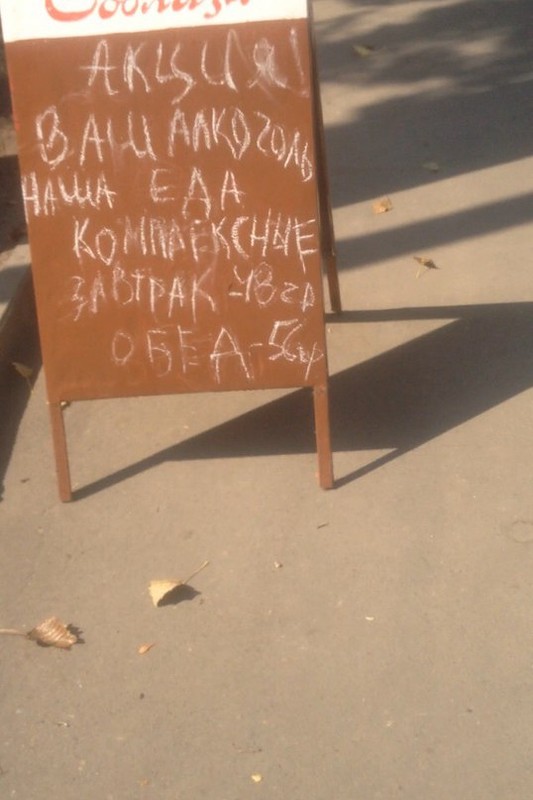 АКЦИЯ!
ВАШ АЛКОГОЛЬ
НАША ЕДА
КОМПЛЕКСНЫЕ
ЗАВТРАК - 48 гр
ОБЕД - 56гр